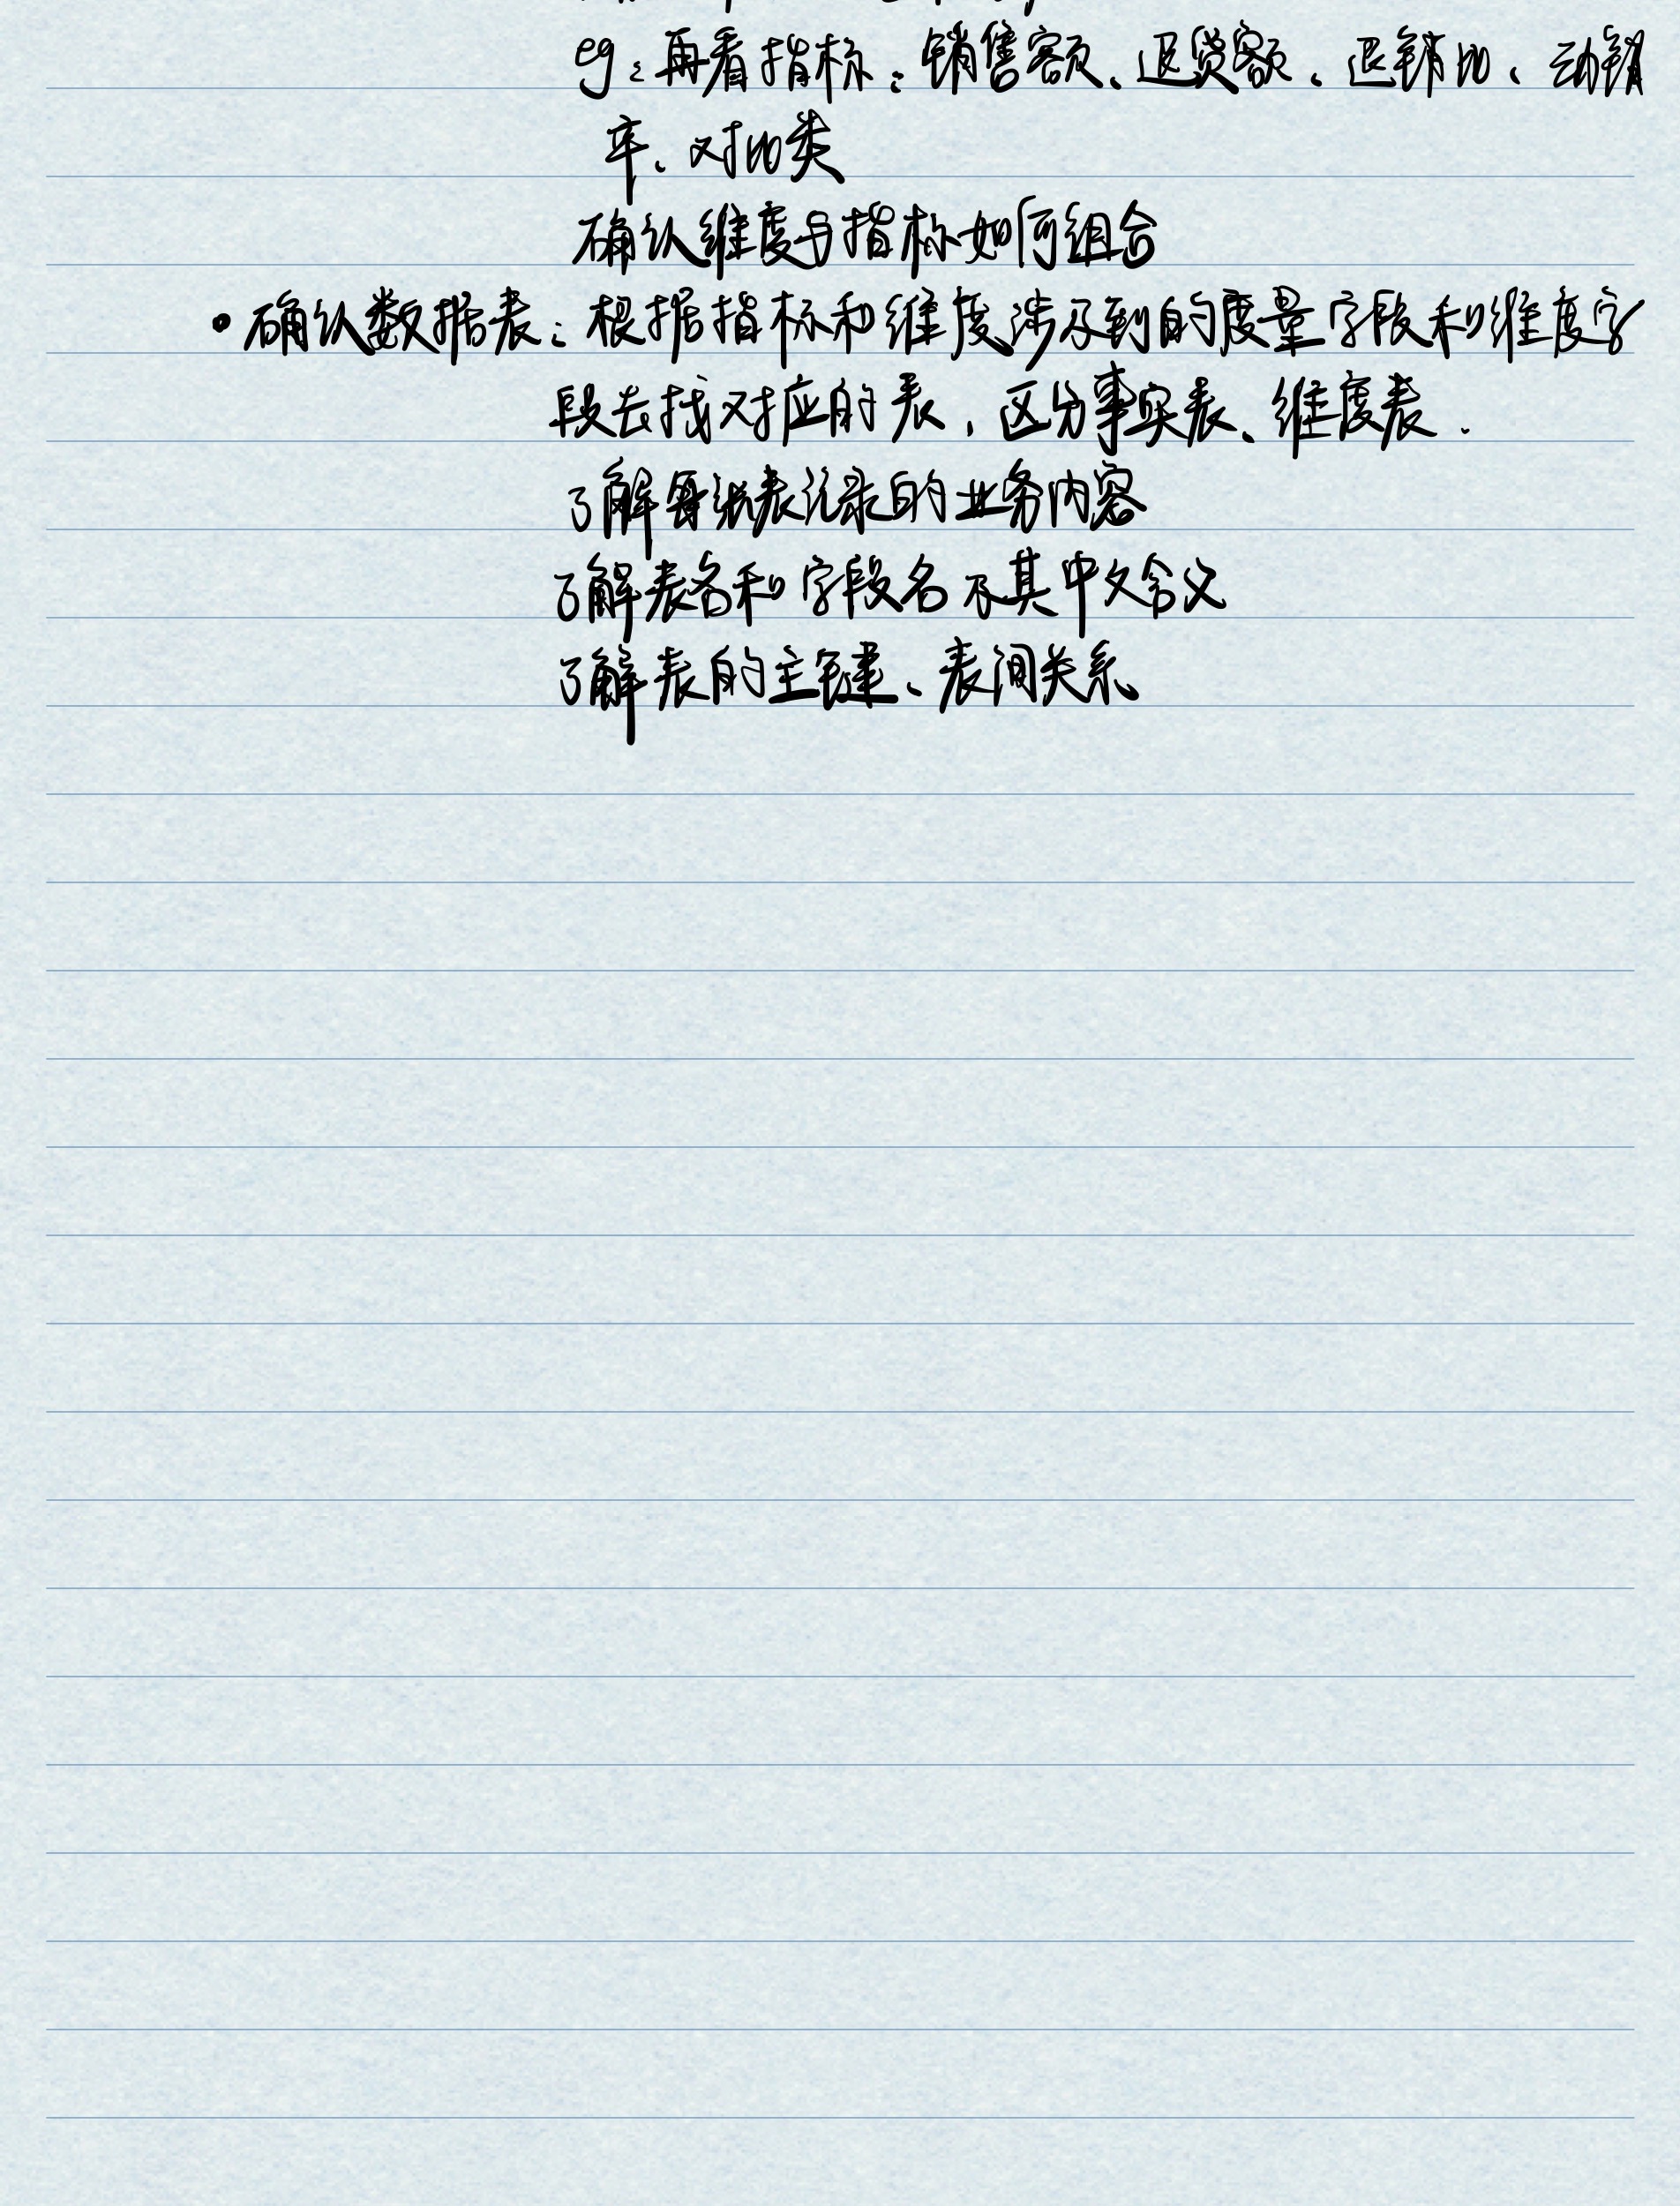 eg：再看指标：销售额、退货额、退销比、动销
率、对比类
确认维度与指标如何组合
• 确认数据表：根据指标和维度涉及到的度量字段和维度字
段去找对应的表，区分事实表、维度表.
了解每张表记录的业务内容
了解表名和字段名及其中文含义
了解表的主键、表间关系